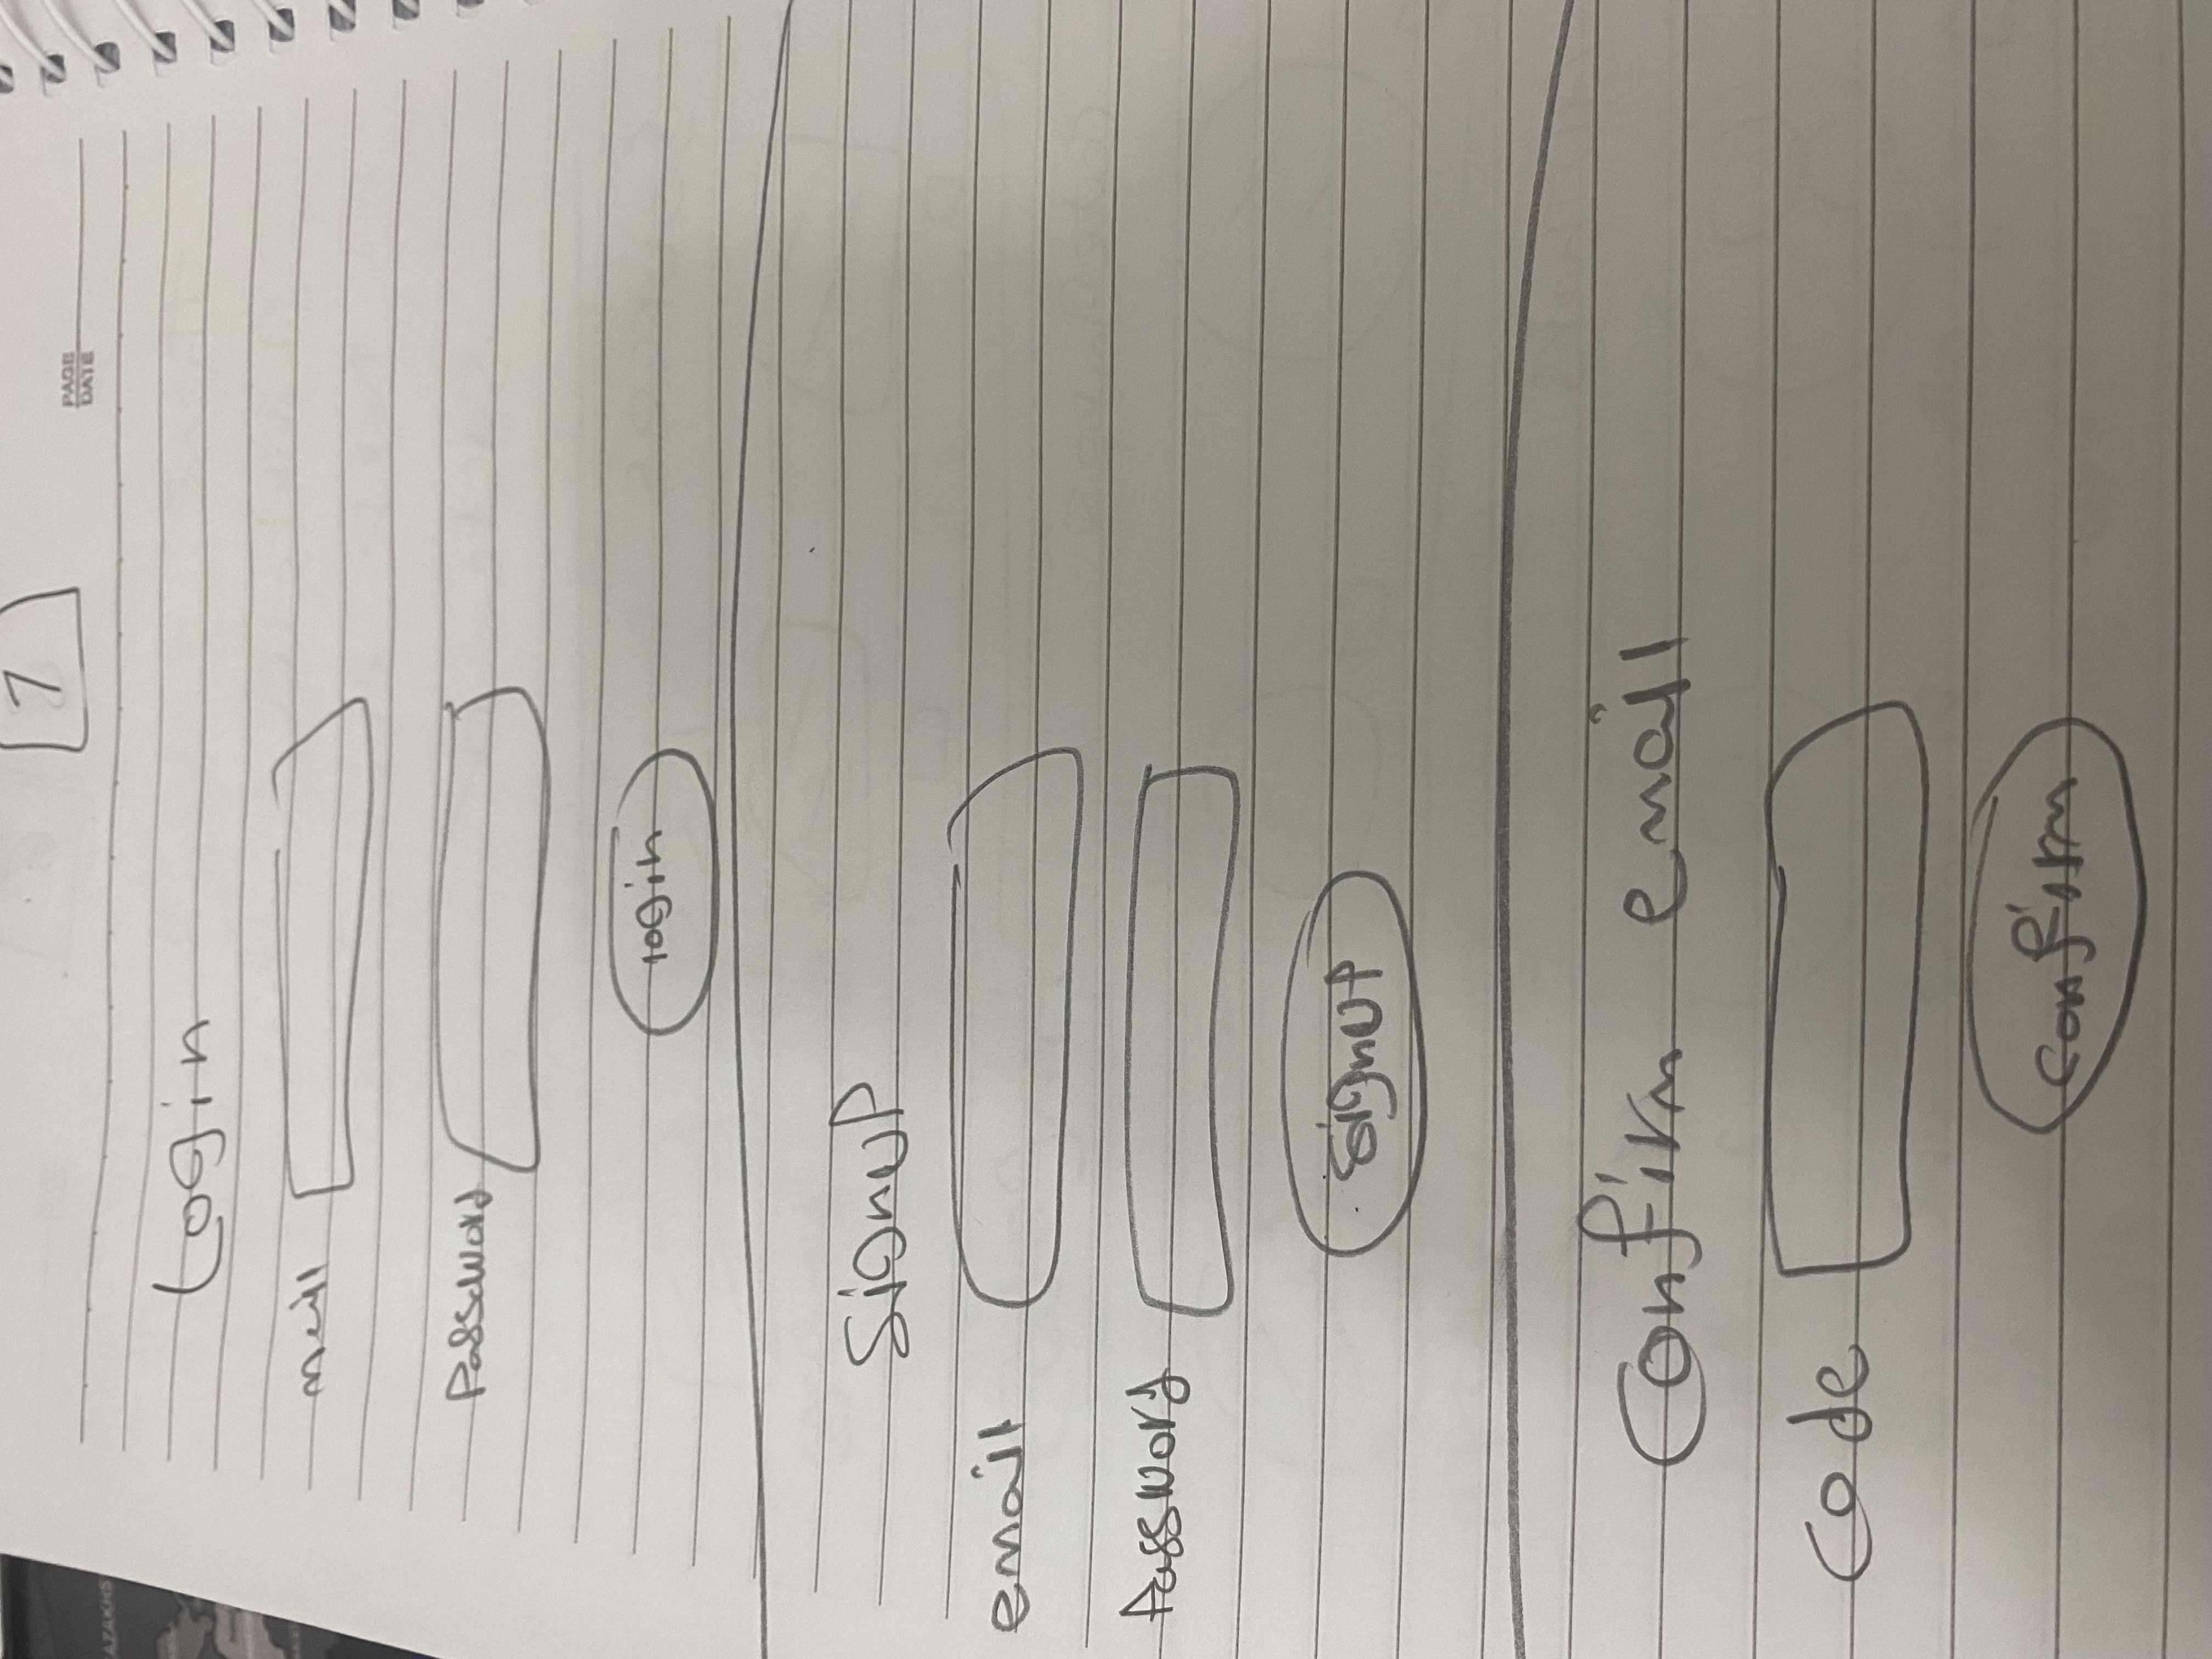 1
PAGE
DATE
AZAKHS
Login
meill
Password
login
SignUP
email
Password
SignUP
Confirm email
Code
Confirm